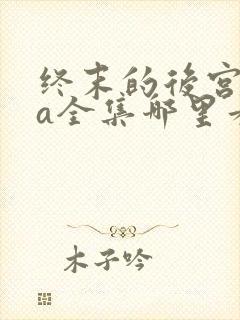 终末的後宫
a全集哪里
木子吟